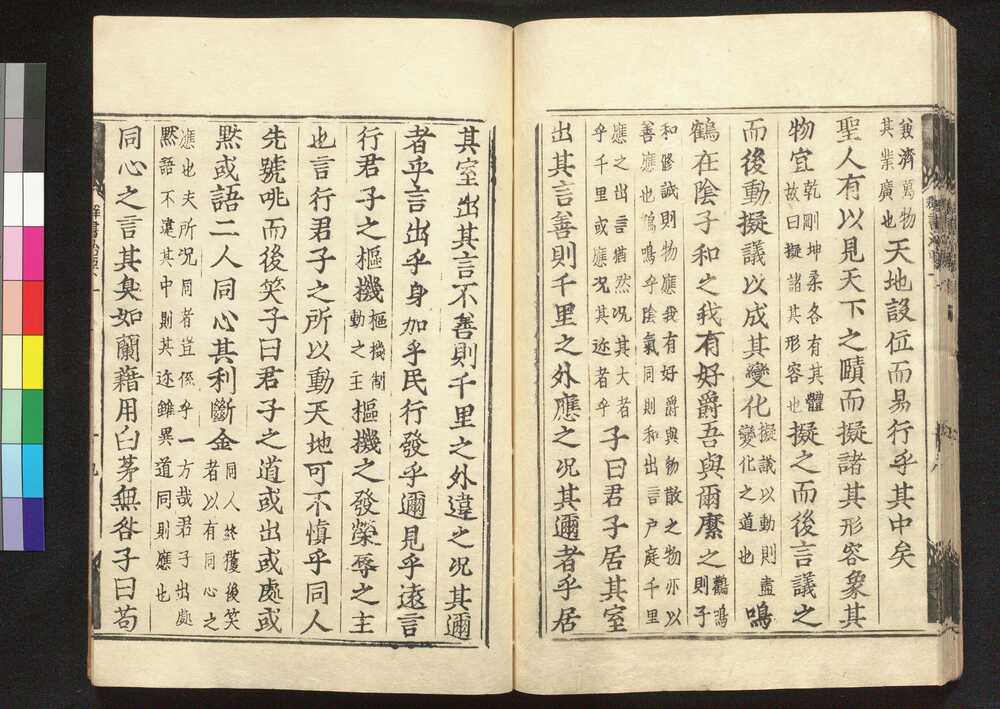 教濟萬物
其業廣也天地設位而易行乎其中矣
聖人有以見天下之賾而擬諸其形容象其
物宜乾剛坤柔各有其體故曰擬諸其形容也擬之而後言議之
而後動擬議以成其變化擬議以動則盡變化之道也鳴
鶴在陰子和之我有好爵吾與爾縻之鶴鳴則子
和脩誠則物應我有好爵與物散之物亦以
善應也鶴鳴乎陰氣同則和出言户庭千里
應之出言猶然况其大者
乎千里或應况其迩者乎子曰君子居其室
出其言善則千里之外應之况其邇者乎居
其室出其言不善則千里之外違之况其邇
者乎言出乎身加乎民行發乎邇見乎遠言
行君子之樞機樞機制動之主樞機之發榮辱之主
也言行君子之所以動天地可不慎乎同人
先號咷而後笑子曰君子之道或出或處或
黙或語二人同心其利斷金同人終獲後笑者以有同心之
應也夫所况同者豈係乎一方哉君子出處
黙語不違其中則其迹雖異道同則應也
同心之言其臭如蘭藉用白茅無咎子曰苟